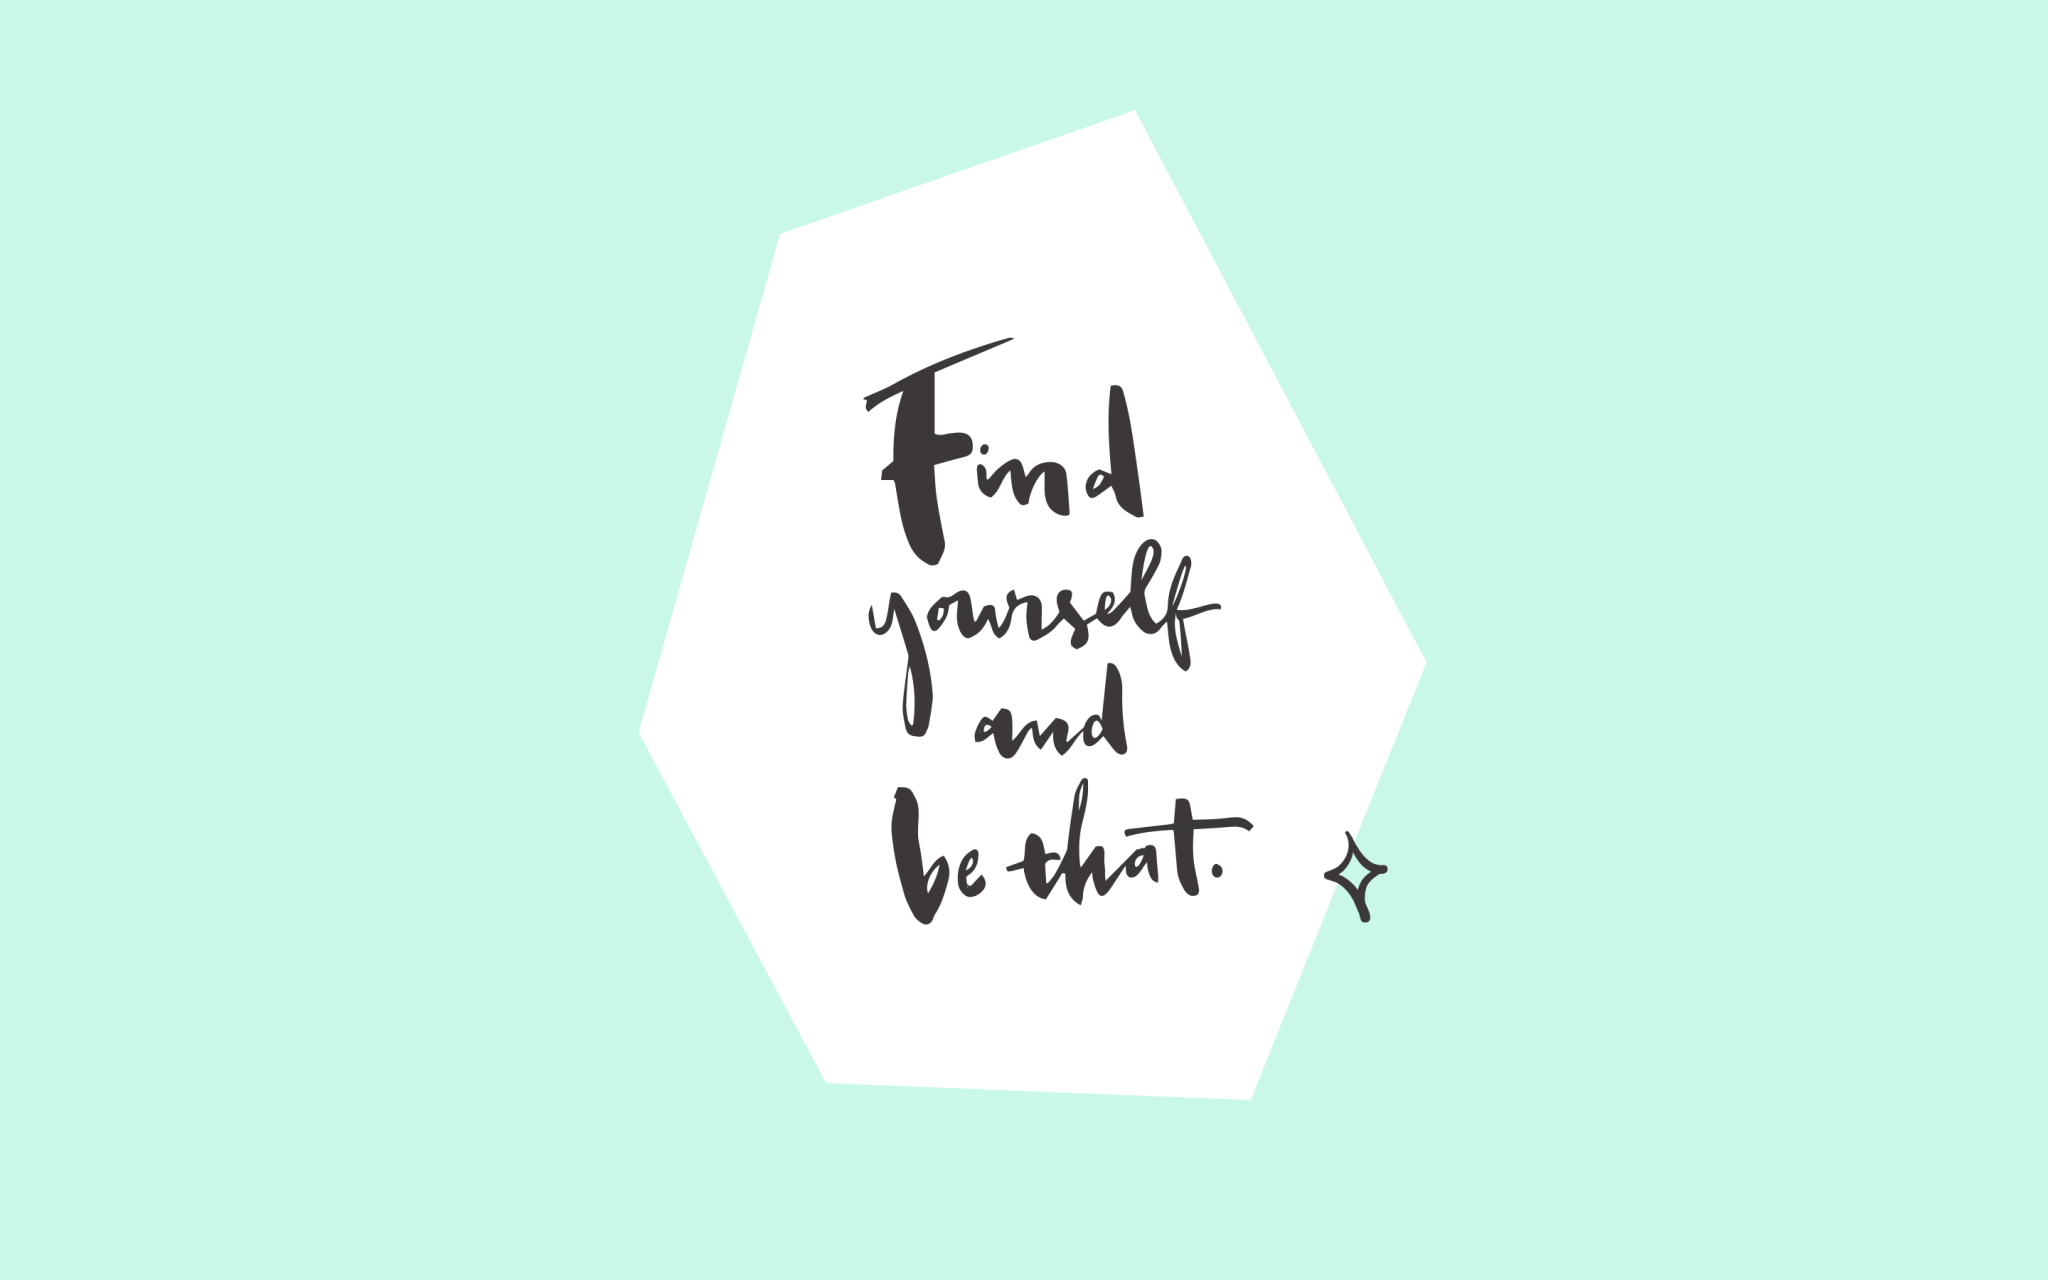 Find
yourself
and
be that.